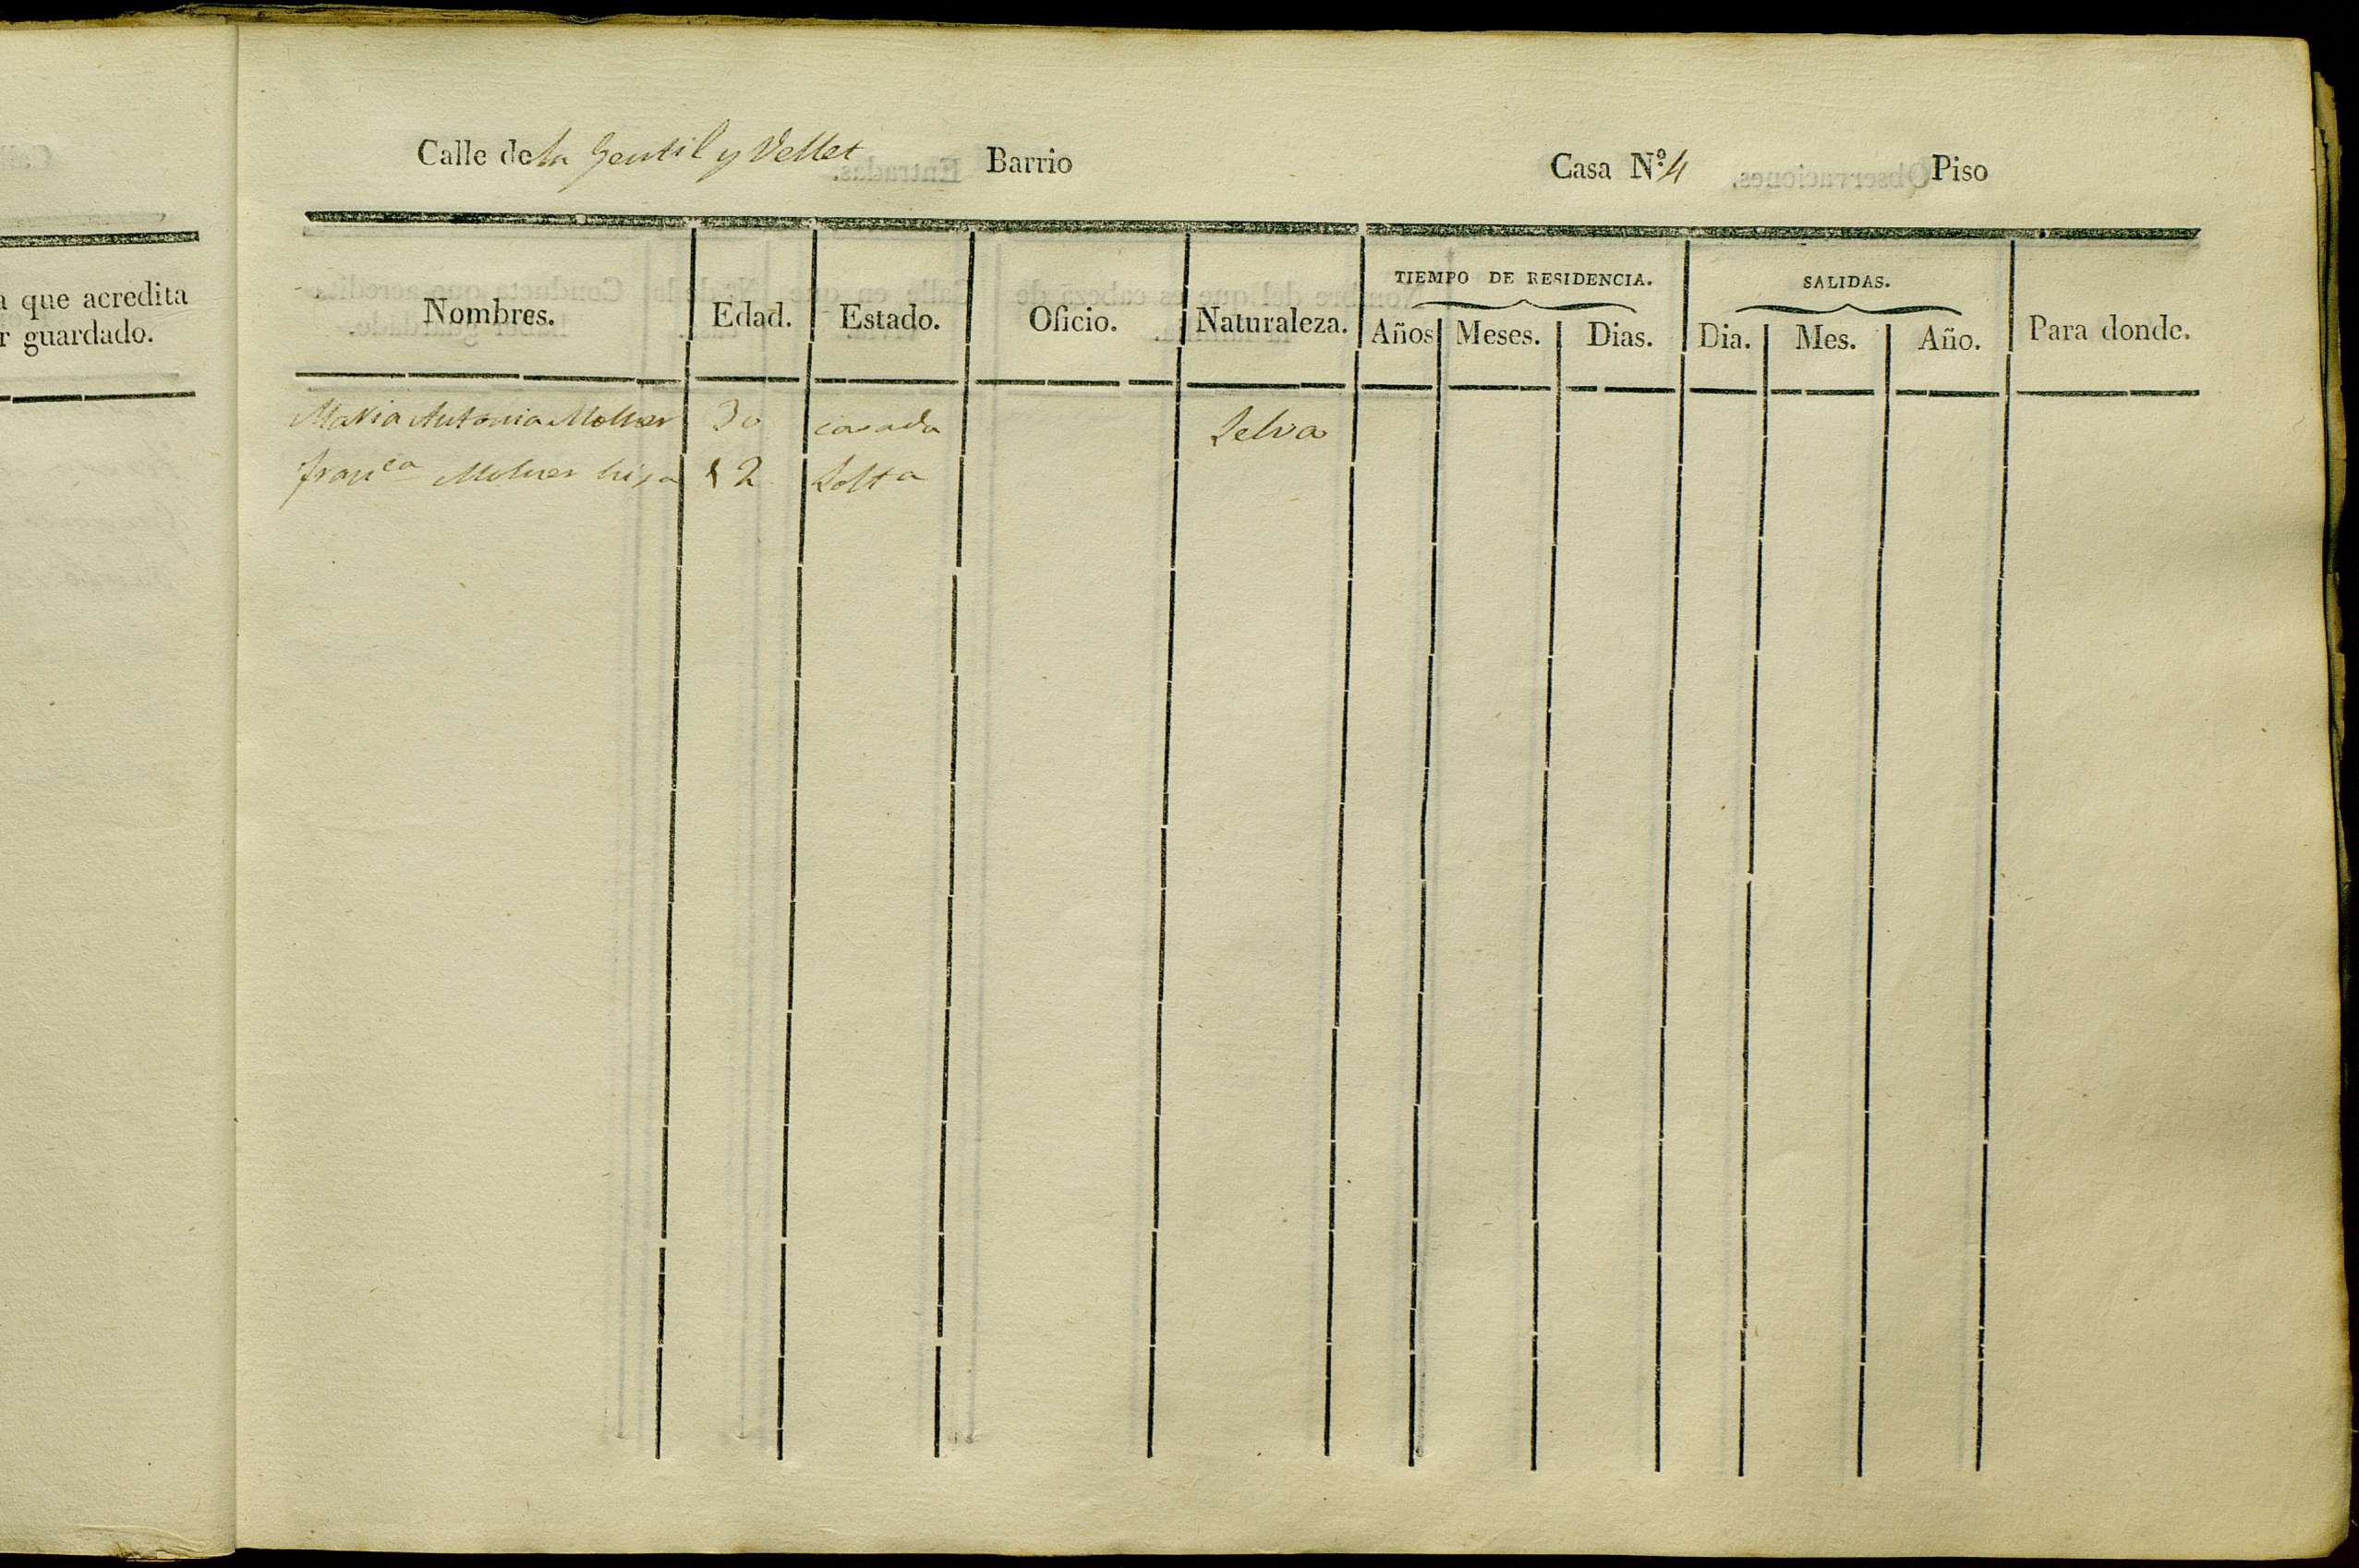 a que acredita
r guardado.
Calle de la Gentil y Vellet Barrio Casa Nº 4 Piso
Nombres. Edad. Estado. Oficio. Naturaleza. TIEMPO DE RESIDENCIA. Años Meses. Dias. SALIDAS. Dia. Mes. Año. Para donde.
Maria Antonia Molner 30 casada Selva
Franca Molner hija 12 Solta